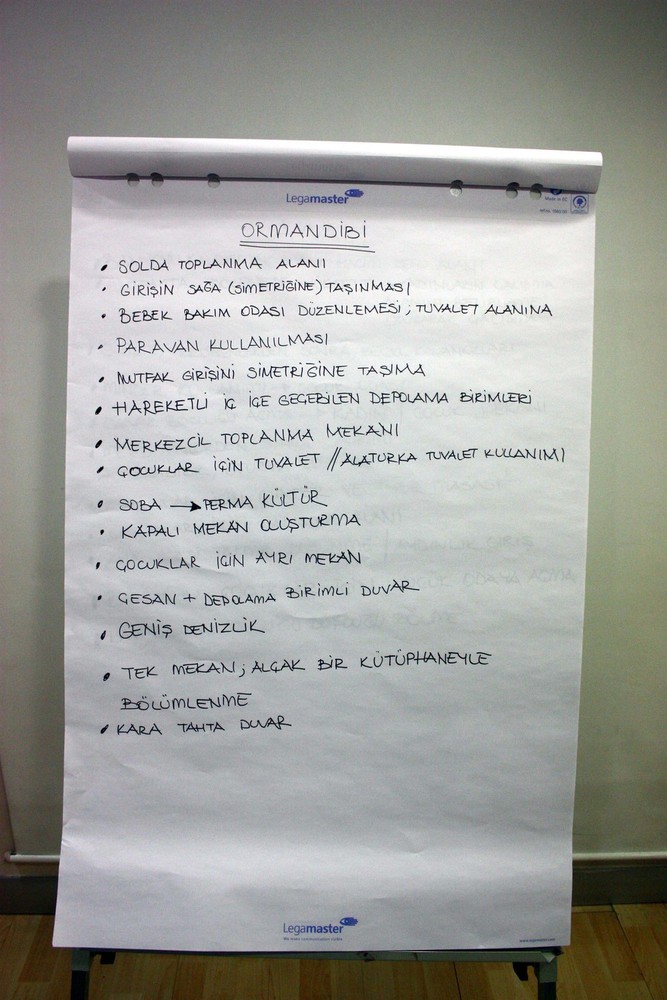 Legamaster
Made in EC
ORMANDİBİ
• SOLDA TOPLANMA ALANI
• GİRİŞİN SAĞA (SİMETRİĞİNE) TAŞINMASI
• BEBEK BAKIM ODASI DÜZENLEMESİ; TUVALET ALANINA
• PARAVAN KULLANILMASI
• MUTFAK GİRİŞİNİ SİMETRİĞİNE TAŞIMA
• HAREKETLİ İÇ İÇE GEÇEBİLEN DEPOLAMA BİRİMLERİ
• MERKEZCİL TOPLANMA MEKANI
• ÇOCUKLAR İÇİN TUVALET // ALATURKA TUVALET KULLANIMI
• SOBA → PERMA KÜLTÜR
• KAPALI MEKAN OLUŞTURMA
• ÇOCUKLAR İÇİN AYRI MEKAN
• GESAN + DEPOLAMA BİRİMLİ DUVAR
• GENİŞ DENİZLİK
• TEK MEKAN; ALÇAK BİR KÜTÜPHANEYLE
BÖLÜMLENME
• KARA TAHTA DUVAR
Legamaster
We make communication visible
www.legamaster.com